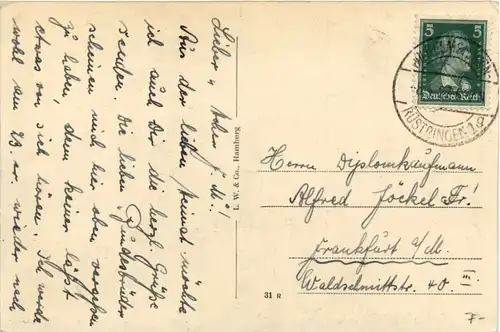 Lieber „ Acker “ M!
Aus der lieben Heimat möchte
ich auch Dir die herzl. Grüße
senden. Die lieben Bundesbrüder
scheinen mich hier oben vergessen
zu haben, denn keiner läßt
etwas von sich hören. Ich werde
wohl am 23. er. wieder nach
L. W. & Co., Hamburg
31 R
5 5
Deutsches Reich
RÜSTRINGEN 1
Herrn Diplomkaufmann
Alfred Jöckel Fr!
Frankfurt a/M.
Waldschmittstr. 40 III.
7-